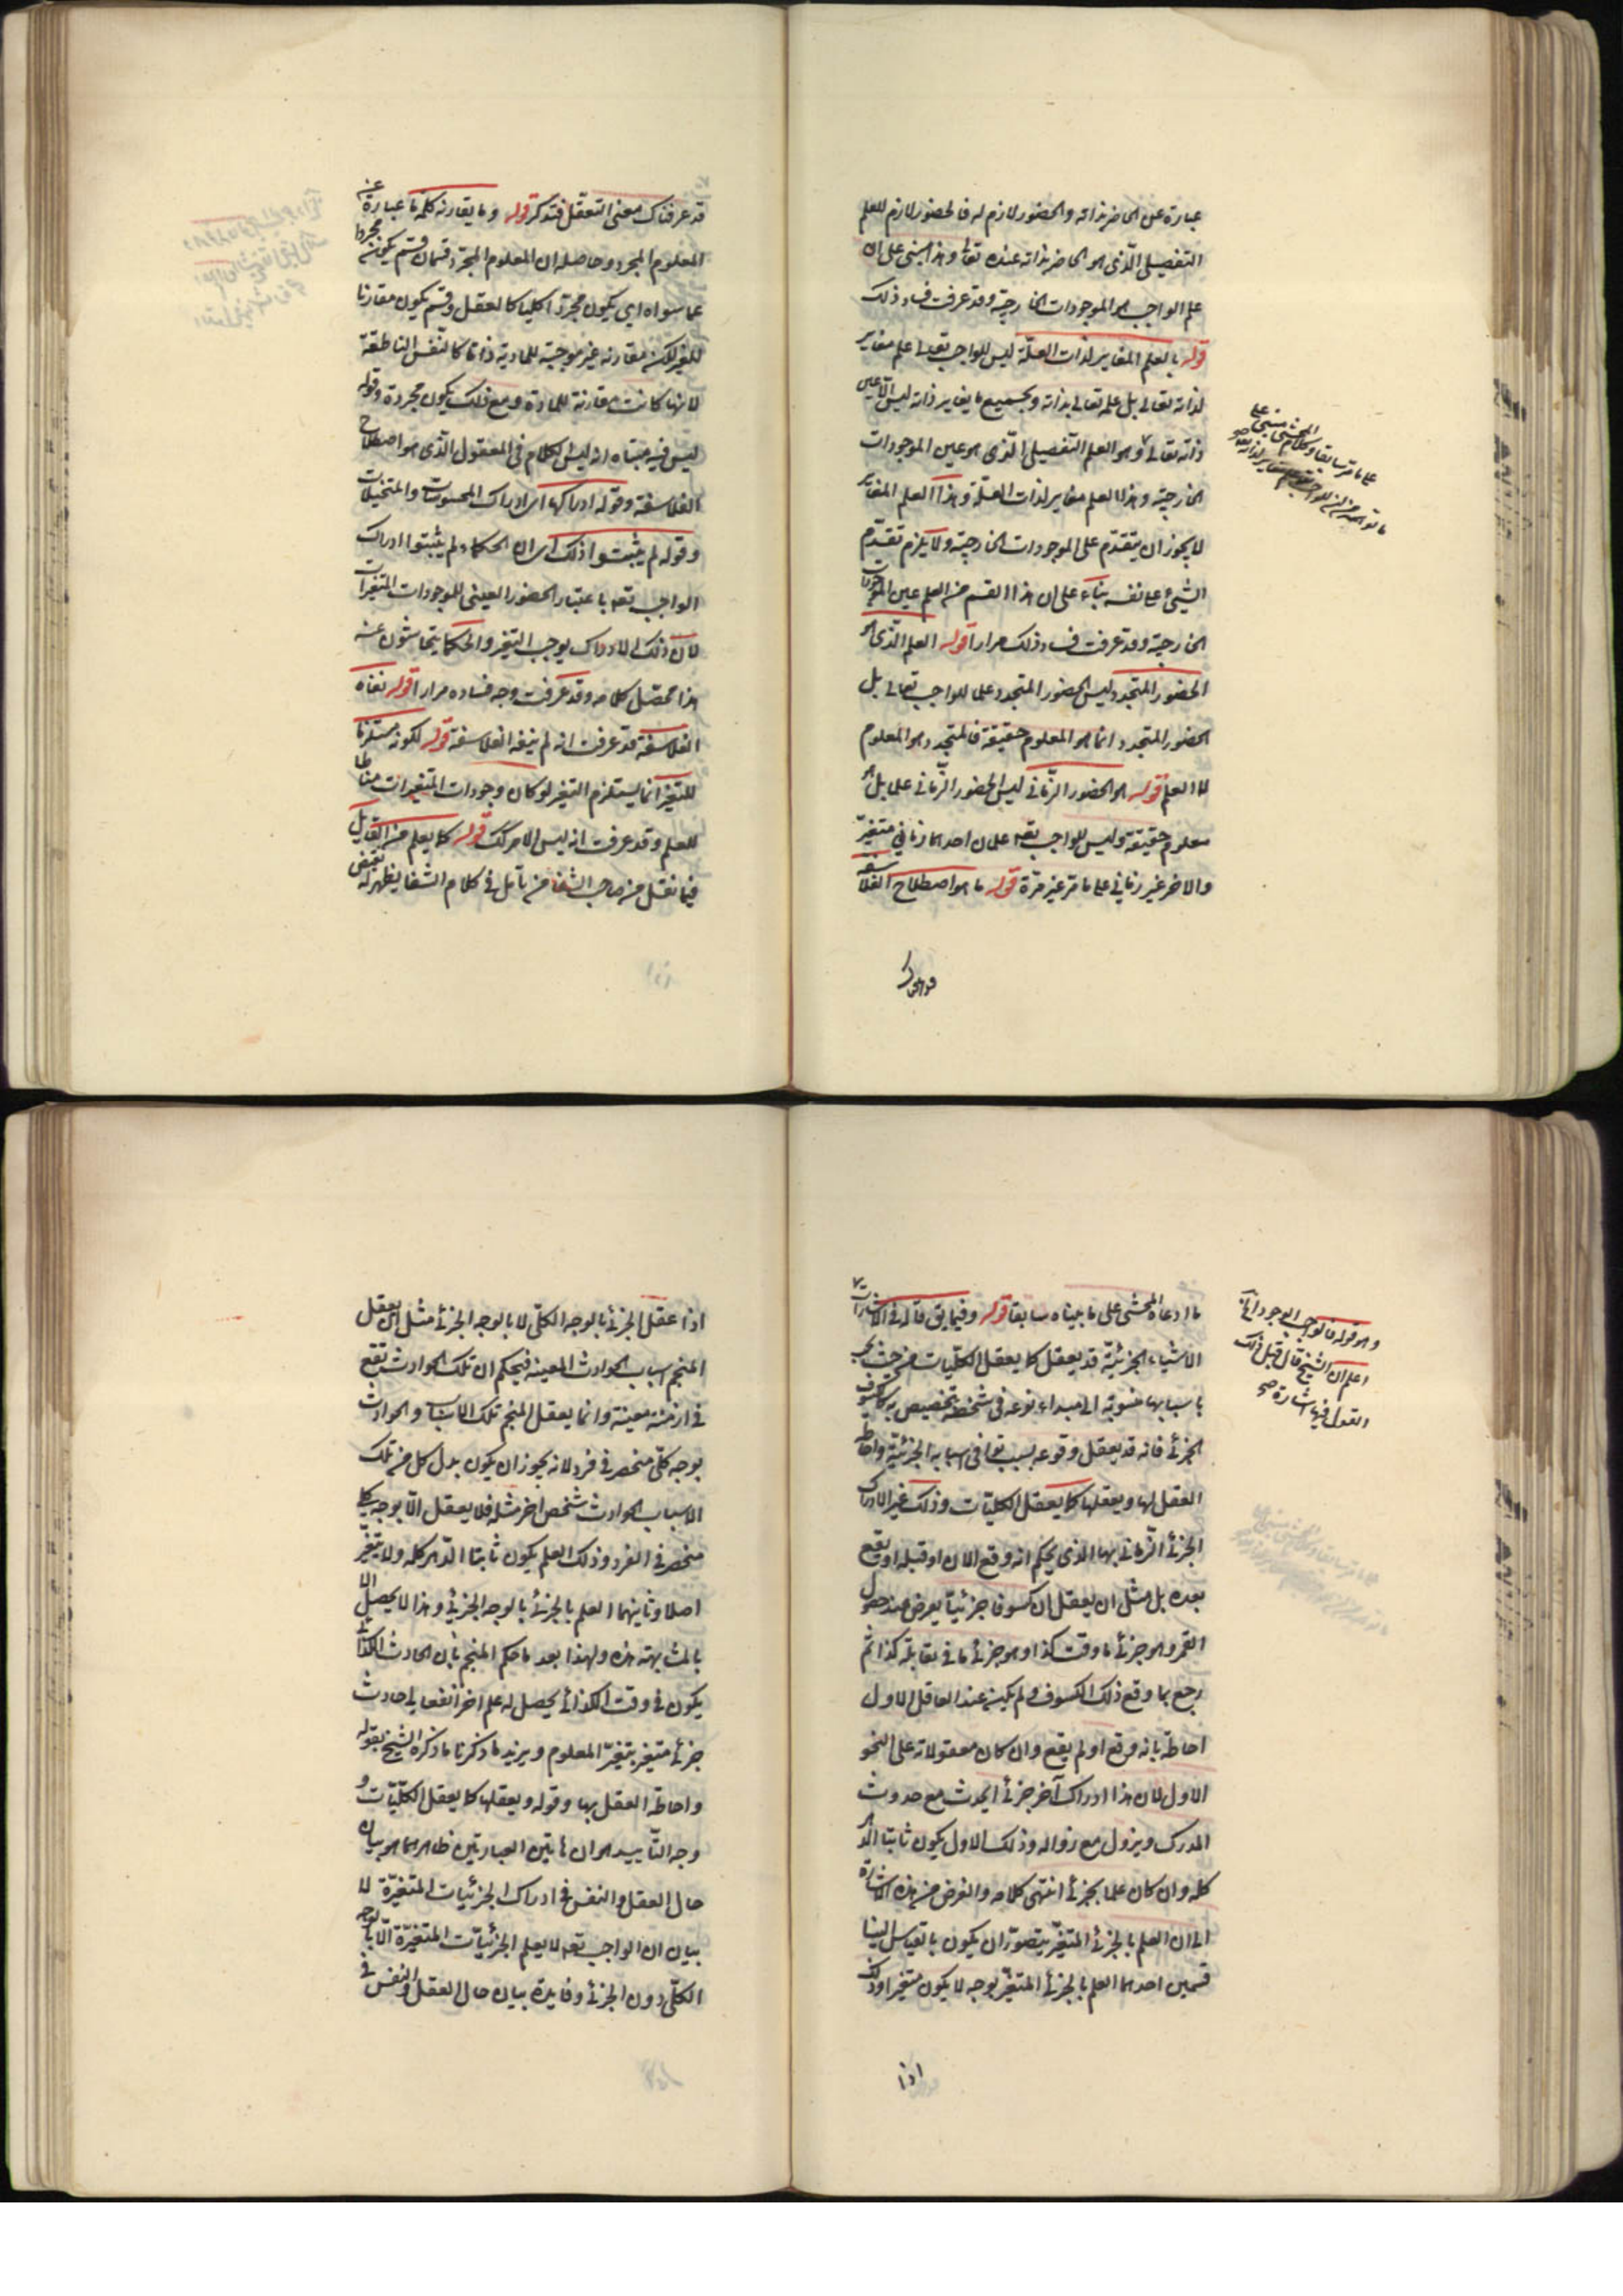 عبارة عن الحاضر بذاته والحضور لازم له فالحضور لازم للعلم
التفصيلى الّذى هو الحاضر بذاته عنده تعالى وهذا مبنى على ان
علم الواجب هو الموجودات الخارجيّة وقد عرفت فساد ذلك
قوله بالعلم المغاير لذات العلّة ليس للواجب تعالى علم مغاير
لذاته تعالى بل علمه تعالى بذاته وبجميع ما يغاير ذاته ليس الا عين
ذاته تعالى وهو العلم التفصيلى الّذى هو عين الموجودات
الخارجيّة وهذا العلم مغاير لذات العلّة وهذا العلم المغاير
لا يجوز ان يتقدّم على الموجودات الخارجيّة ولا يلزم تقدّم
الشيئ على نفسه بناء على ان هذا القسم من العلم عين الموجودات
الخارجيّة وقد عرفت فساد ذلك مرارا قوله العلم الّذى هو
الحضور المتجدد ليس الحضور المتجدد علما للواجب تعالى بل
الحضور المتجدد انما هو المعلوم حقيقة فالمتجدد هو المعلوم
لا العلم قوله هو الحضور الزّمانى ليس الحضور الزّمانى علما بل هو
معلوم حقيقة وليس للواجب تعه علمان احدهما زمانى متغيّر
والاخر غير زمانى على ما مرّ غير مرّة قوله ما هو اصطلاح الفلاسفة
على ما مرّ سابقا وكلام المحشى مبنى على
قد عرفناك معنى التعقّل فتذكر قوله وما يقارنه كلمة ما عبارة عن
المعلوم المجرد وحاصله ان المعلوم المجرّد قسمان قسم يكون مجردا
عما سواه اى يكون مجرّدا كليا كالعقل وقسم يكون مقارنا
للغير لكنه مقارنة غير موجبة للمادية ذاتا كالنفس الناطقة
لانها كانت مقارنة للمادة ومع ذلك يكون مجردة وقوله
ليس فيه مبتباه انه ليس الكلام فى المعقول الّذى هو اصطلاح
الفلاسفة وقوله ادراكها اى ادراك المحسوسات والمتخيلات
وقوله لم يثبتوا ذلك اى ان الحكماء لم يثبتوا ادراك
الواجب تعه باعتبار الحضور العينى للموجودات المتغيرات
لان ذلك الادراك يوجب التغير والحكماء يتحاشون عنه
هذا محصّل كلامه وقد عرفت وجه فساده مرارا قوله نفاه
الفلاسفة قد عرفت انه لم ينفه الفلاسفة قوله لكونه مستلزما
للتغير انما يستلزم التغير لو كان وجودات المتغيرات مناطا
للعلم وقد عرفت انه ليس الامر كك قوله كما يعلم من القايل
فيما نقل من صاحب الشفا من تأمل فى كلام الشفا يظهر له نقيض
ما ادعاه المحشى على ما بيناه سابقا قوله وفيما يق قاله فى الاشارات
الاشياء الجزئيّة قد يعقل كما يعقل الكلّيات من حيث يجب
باسبابها منسوبة الى مبداء نوعه فى شخصه تخصيص به كالكسوف
الجزئى فانه قد يعقل وقوعه بسبب توافى اسبابه الجزئيّة واحاطة
العقل لها ويعقلها كما يعقل الكليّات وذلك غير الادراك
الجزئى الزّمانى بها الذى يحكم انه وقع الان او قبله او يقع
بعده بل مثل ان يعقل ان كسوفا جزئيّا يعرض عند حصول
القمر وهو جزئى ما وقت كذا وهو جزئى ما فى مقابلة كذا ثم
ربما وقع ذلك الكسوف ولم يكن عند العاقل الاول
احاطة بانه وقع او لم يقع وان كان معقولا له على النحو
الاول لان هذا ادراك آخر جزئى يحدث مع حدوث
المدرك ويزول مع زواله وذلك الاول يكون ثابتا الدهر
كله وان كان علما بجزئى انتهى كلامه والغرض من هذه الاشارة
الى ان العلم بالجزئى المتغيّر يتصوّر ان يكون بالقياس الينا
قسمين احدهما العلم بالجزئى المتغيّر بوجه لا يكون متغيرا وذلك
اذا
وهو قوله فالواجب الوجود
اعلم ان الشيخ قال قبل ذلك
القول فيها اشارة صح
اذا عقل الجزئى بالوجه الكلّى لا بالوجه الجزئى مثل ان يعقل
المنجم اسباب الحوادث المعينة فيحكم ان تلك الحوادث تقع
فى ازمنة معينة وانما يعقل المنجم تلك الاسباب والحوادث
بوجه كلّى منحصر فى فرد لانه يجوز ان يكون بدل كل من تلك
الاسباب الحوادث شخص اخر مثله فلا يعقل الّا بوجه كلى
منحصر فى الفرد وذلك العلم يكون ثابتا الدّهر كله ولا يتغيّر
اصلا وثانيهما العلم بالجزئى بالوجه الجزئى وهذا لا يحصل الا
بالمشاهدة ولهذا بعد ما حكم المنجم بان الحادث الكذائى
يكون فى وقت الكذائى يحصل له علم اخر انفعالى حادث
جزئى متغير بتغيّر المعلوم ويؤيد ما ذكرنا ما ذكره الشيخ بقوله
واحاطة العقل بها وقوله ويعقلها كما يعقل الكلّيّات و
وجه التأييد هو ان هاتين العبارتين ظاهرهما هو بيان
حال العقل والنفس فى ادراك الجزئيات المتغيّرة لا
بيان ان الواجب تعه لا يعلم الجزئيّات المتغيّرة الّا بالوجه
الكلّى دون الجزئى وفايدة بيان حال العقل والنفس فى